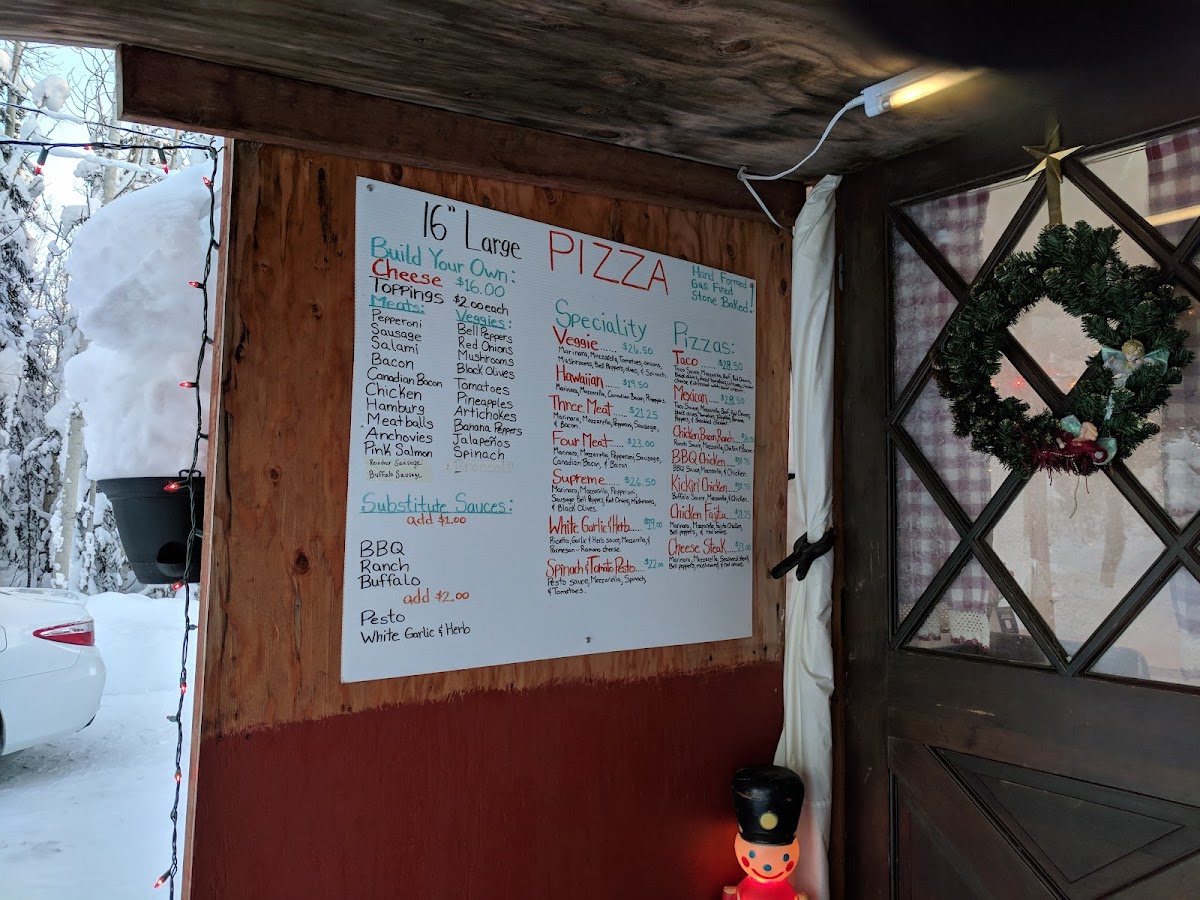 16" Large PIZZA
Hand Formed
Gas Fired
Stone Baked!
Build Your Own:
Cheese $16.00
Toppings $2.00 each
Meats:
Pepperoni
Sausage
Salami
Bacon
Canadian Bacon
Chicken
Hamburg
Meatballs
Anchovies
Pink Salmon
Reindeer Sausage
Buffalo Sausage
Veggies:
Bell Peppers
Red Onions
Mushrooms
Black Olives
Tomatoes
Pineapples
Artichokes
Banana Peppers
Jalapeños
Spinach
Broccoli
Substitute Sauces:
add $1.00
BBQ
Ranch
Buffalo
add $2.00
Pesto
White Garlic & Herb
Speciality Pizzas:
Veggie...... $26.50
Marinara, Mozzarella, Tomatoes, onions,
Mushrooms, Bell Peppers, olives, & Spinach.
Hawaiian..... $19.50
Marinara, Mozzarella, Canadian Bacon, Pineapples.
Three Meat..... $21.25
Marinara, Mozzarella, Pepperoni, Sausage,
& Bacon.
Four Meat.... $23.00
Marinara, Mozzarella, Pepperoni, Sausage,
Canadian Bacon, & Bacon.
Supreme..... $26.50
Marinara, Mozzarella, Pepperoni,
Sausage, Bell Peppers, Red Onions, Mushrooms,
& Black Olives.
White Garlic & Herb..... $19.00
Ricotta, Garlic & Herb sauce, Mozzarella, &
Parmesan - Romano cheese.
Spinach & Tomato Pesto.... $22.00
Pesto sauce, Mozzarella, Spinach,
& Tomatoes.
Taco ..... $28.50
Taco Sauce, Mozzarella, Beef, Red Onions,
Mexican..... $28.50
Taco Sauce, Mozzarella, Beef, Red Onions,
Chicken Bacon Ranch
Ranch Sauce, Mozzarella, Chicken & Bacon.
BBQ Chicken
BBQ Sauce, Mozzarella, & Chicken.
Kickin' Chicken
Buffalo Sauce, Mozzarella, & Chicken.
Chicken Fajita
Marinara, Mozzarella, Fajita Chicken,
Bell peppers, & red onions.
Cheese Steak.... $23.00
Marinara, Mozzarella, Seasoned steak,
Bell peppers, mushrooms, & red onions.